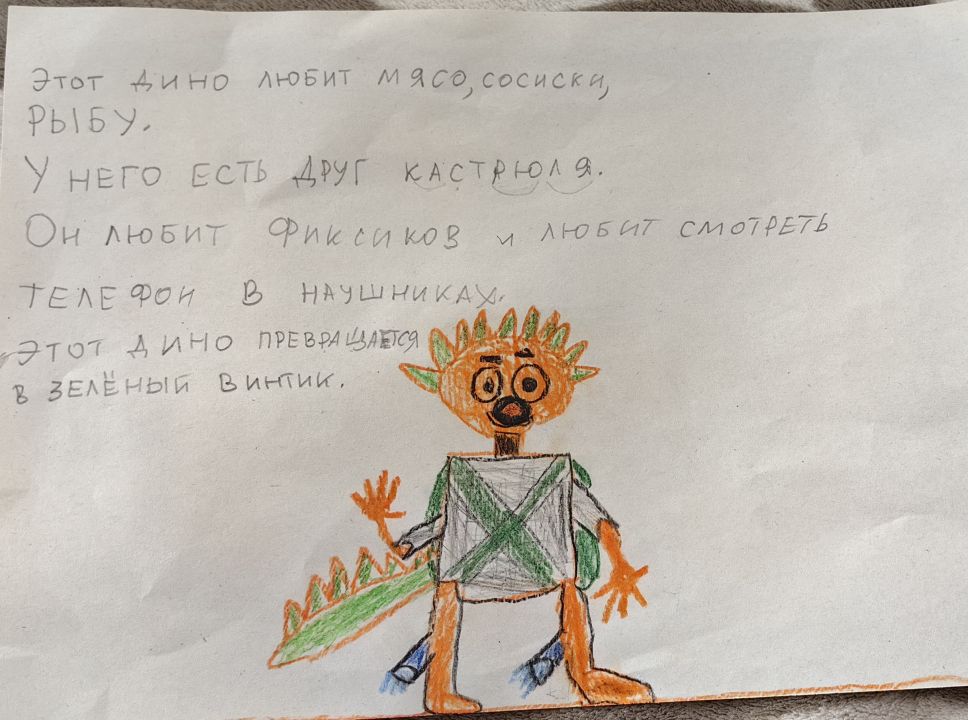 Этот дино любит мясо, сосиски,
рыбу.
У него есть друг кастрюля.
Он любит Фиксиков и любит смотреть
телефон в наушниках.
Этот дино превращается
в зелёный винтик.